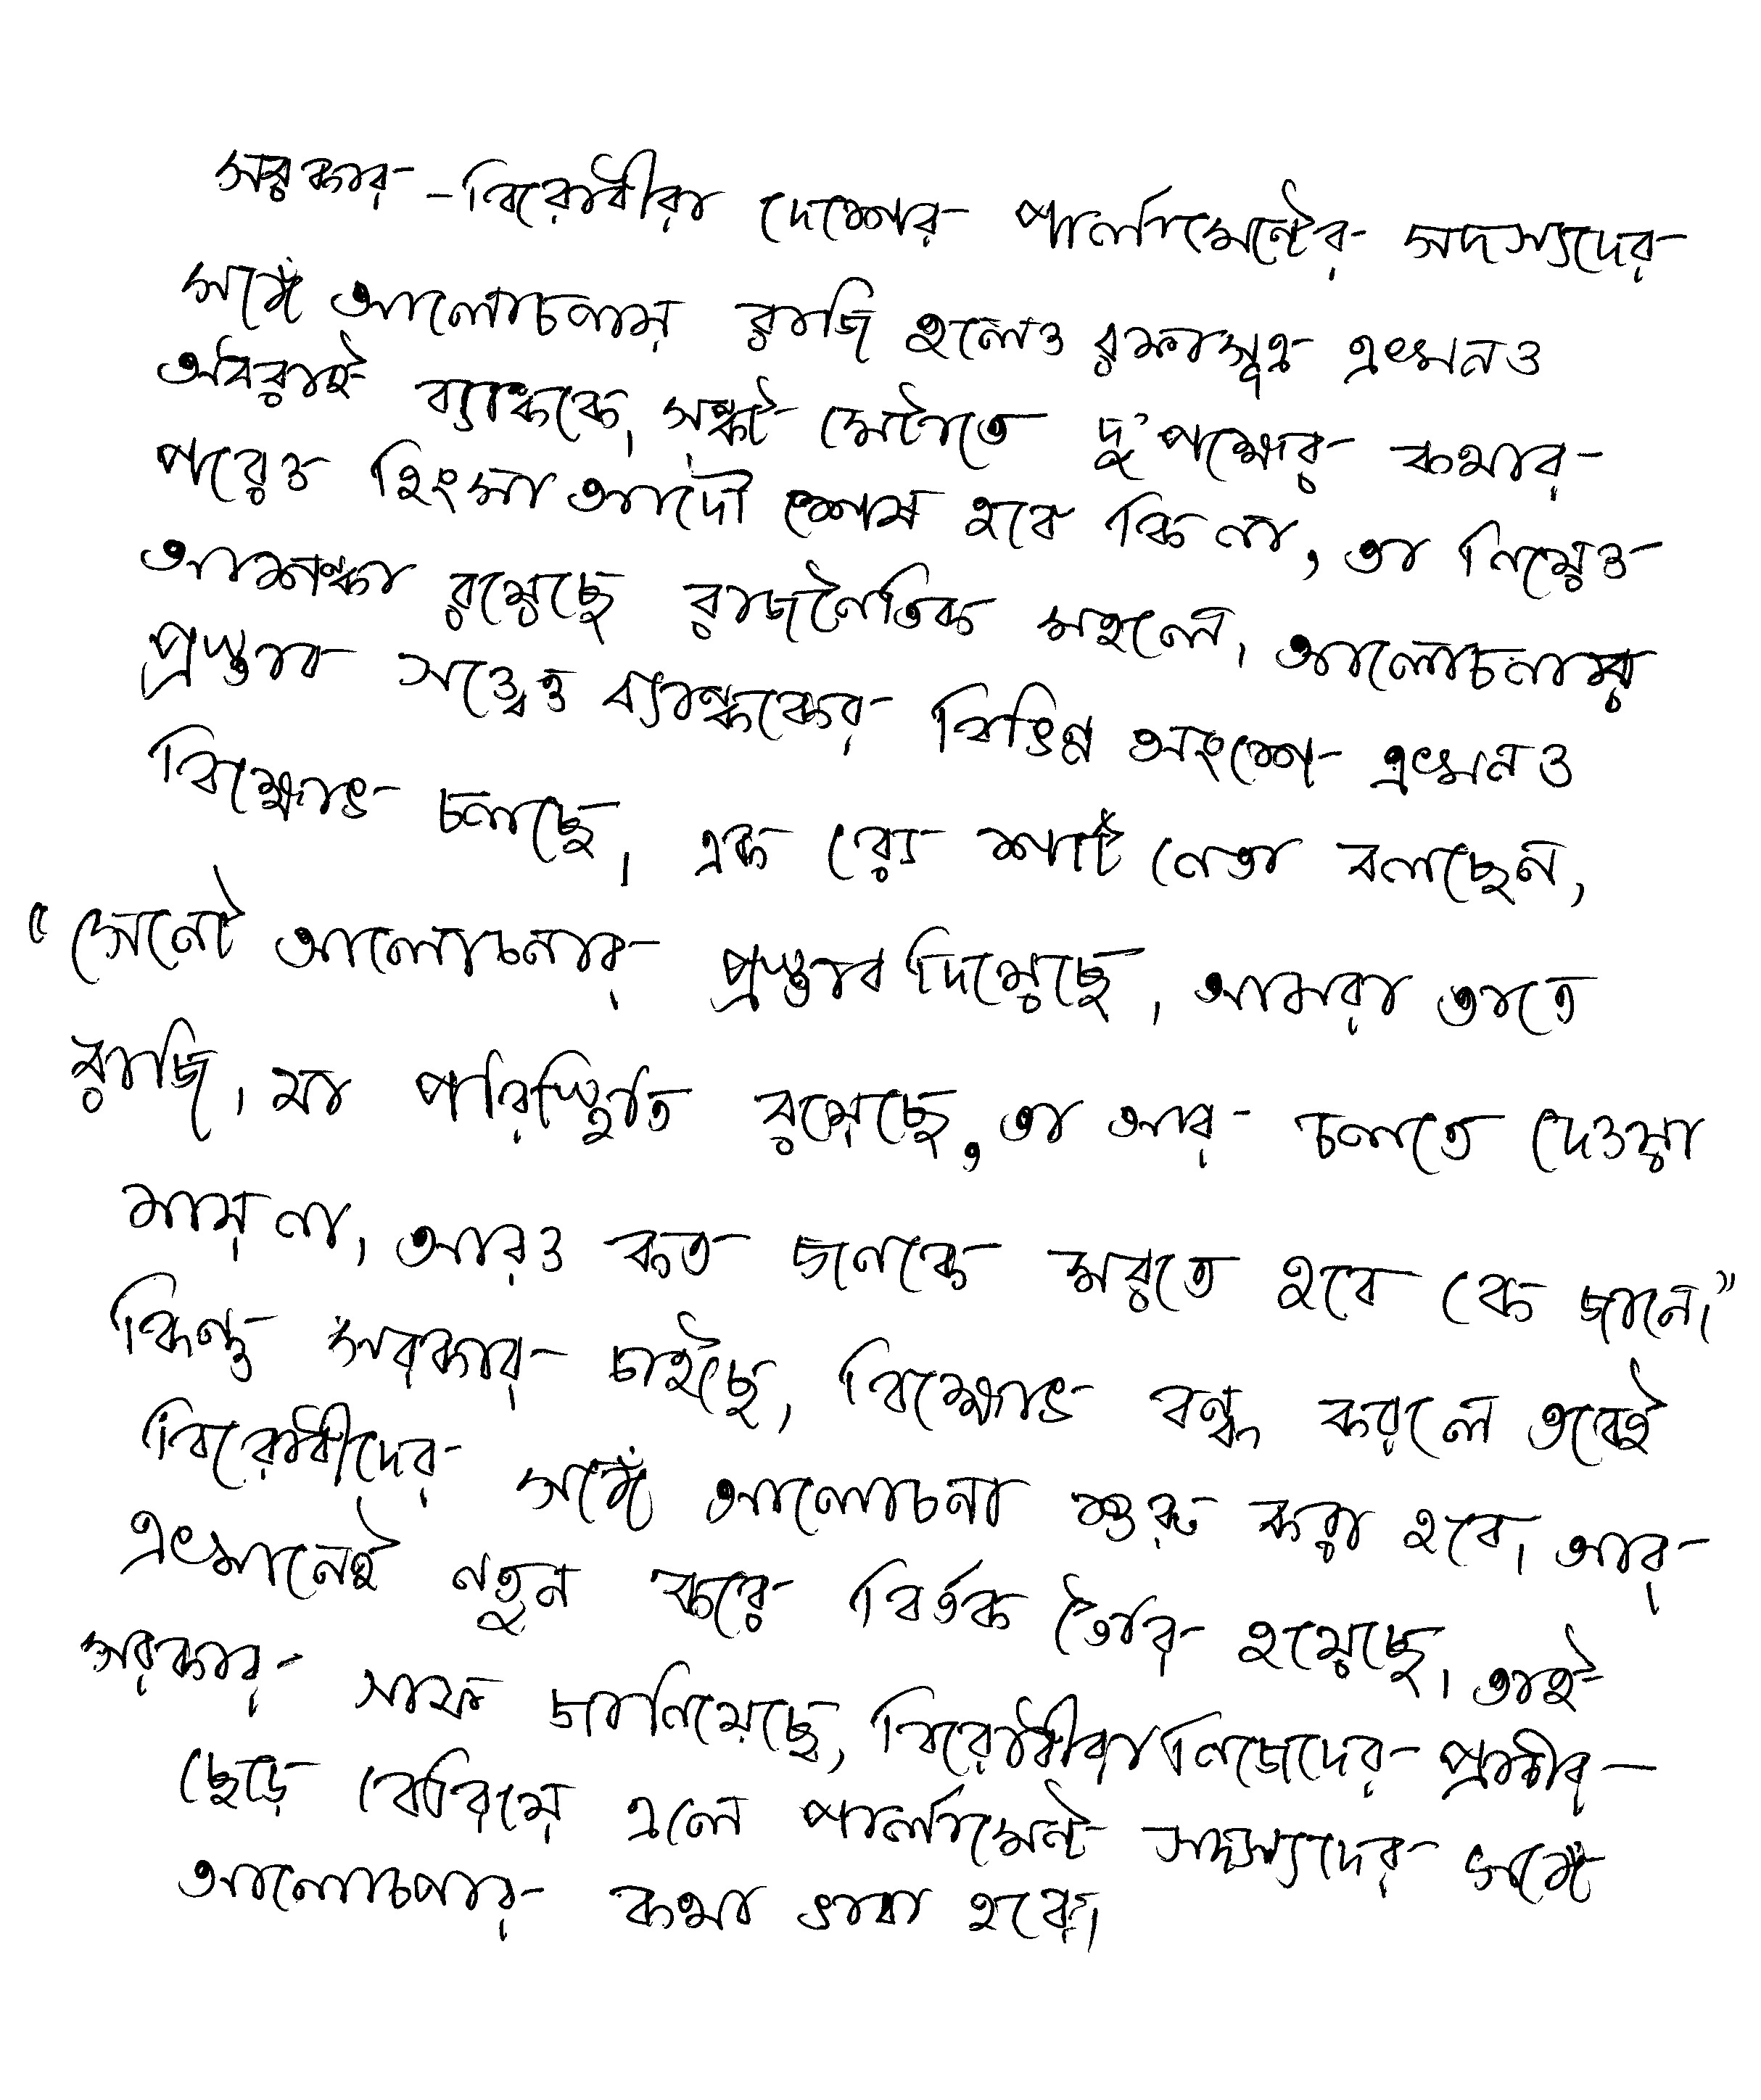 সরকার-বিরোধীরা দেশের পার্লামেন্টের সদস্যদের
সঙ্গে আলোচনায় রাজি হলেও রফাসূত্র এখনও
অধরাই ব্যাঙ্ককে। সঙ্কট মেটাতে দু'পক্ষের কথার
পরেও হিংসা আদৌ শেষ হবে কি না, তা নিয়েও
আশঙ্কা রয়েছে রাজনৈতিক মহলে। আলোচনার
প্রস্তাব সত্ত্বেও ব্যাঙ্ককের বিভিন্ন অংশে এখনও
বিক্ষোভ চলছে। এক রেড শার্ট নেতা বলছেন,
“সেনেট আলোচনার প্রস্তাব দিয়েছে। আমরা তাতে
রাজি। যা পরিস্থিতি রয়েছে, তা আর চলতে দেওয়া
যায় না। আরও কত জনকে মরতে হবে কে জানে।”
কিন্তু সরকার চাইছে, বিক্ষোভ বন্ধ করলে তবেই
বিরোধীদের সঙ্গে আলোচনা শুরু করা হবে। আর
এখানেই নতুন করে বির্তক তৈরি হয়েছে। তাই
সরকার সাফ জানিয়েছে, বিরোধীরা নিজেদের প্রাচীর
ছেড়ে বেরিয়ে এলে পার্লামেন্ট সদস্যদের সঙ্গে
আলোচনার কথা ভাবা হবে।